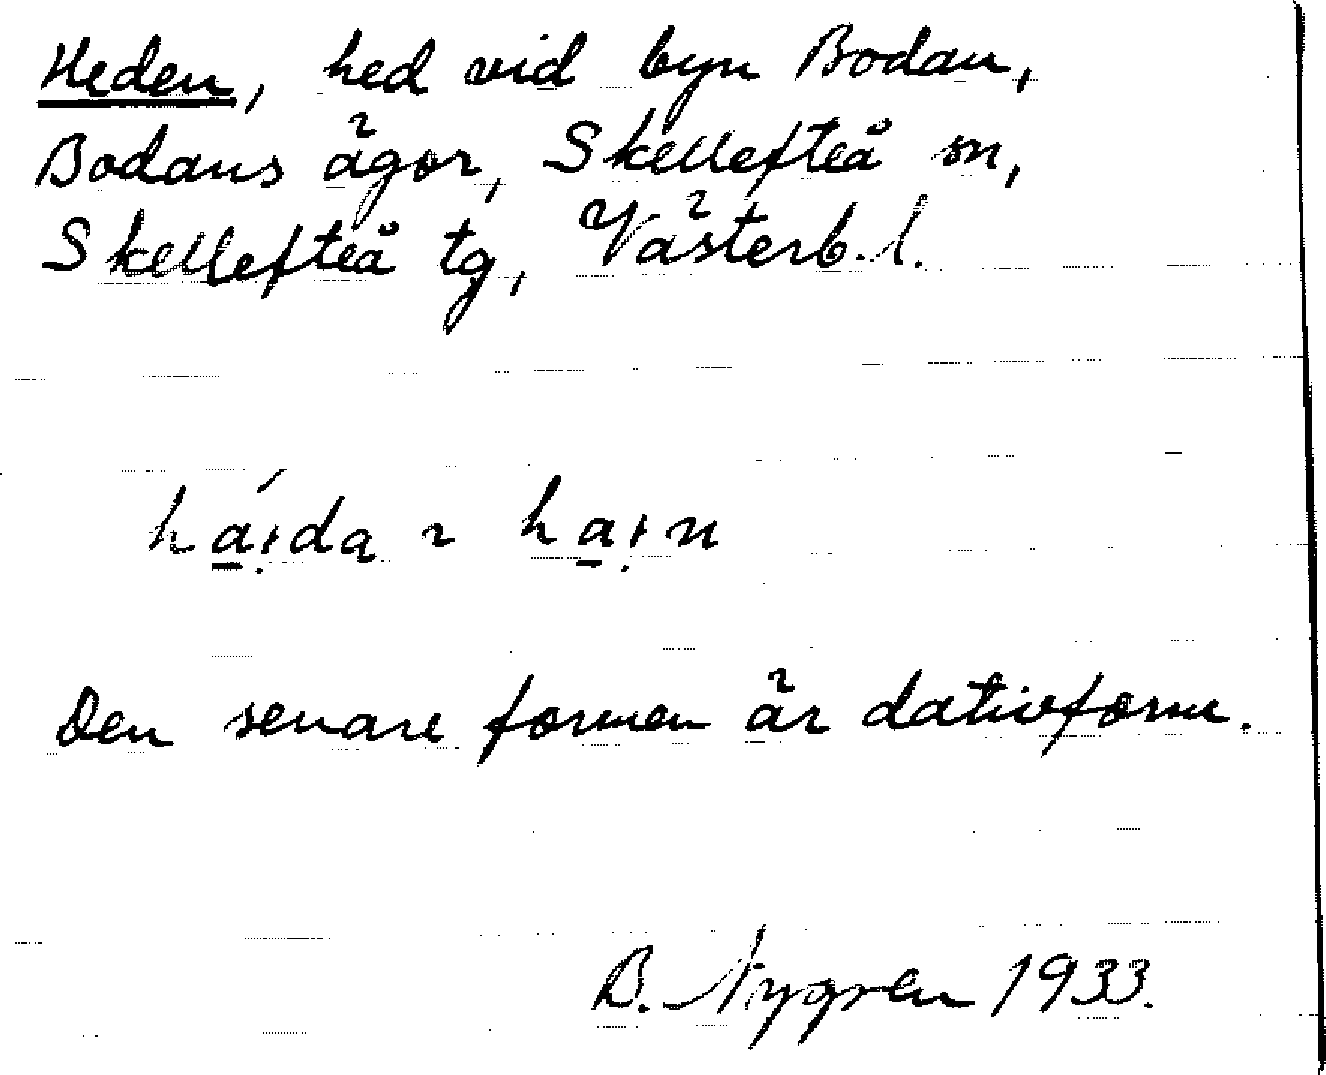 Heden, hed vid byn Bodan,
Bodans ägor, Skellefteå sn,
Skellefteå tg, Västerb. l.
há̱i̩da ~ ha̱i̩n
Den senare formen är dativform.
B. Nygren 1933.